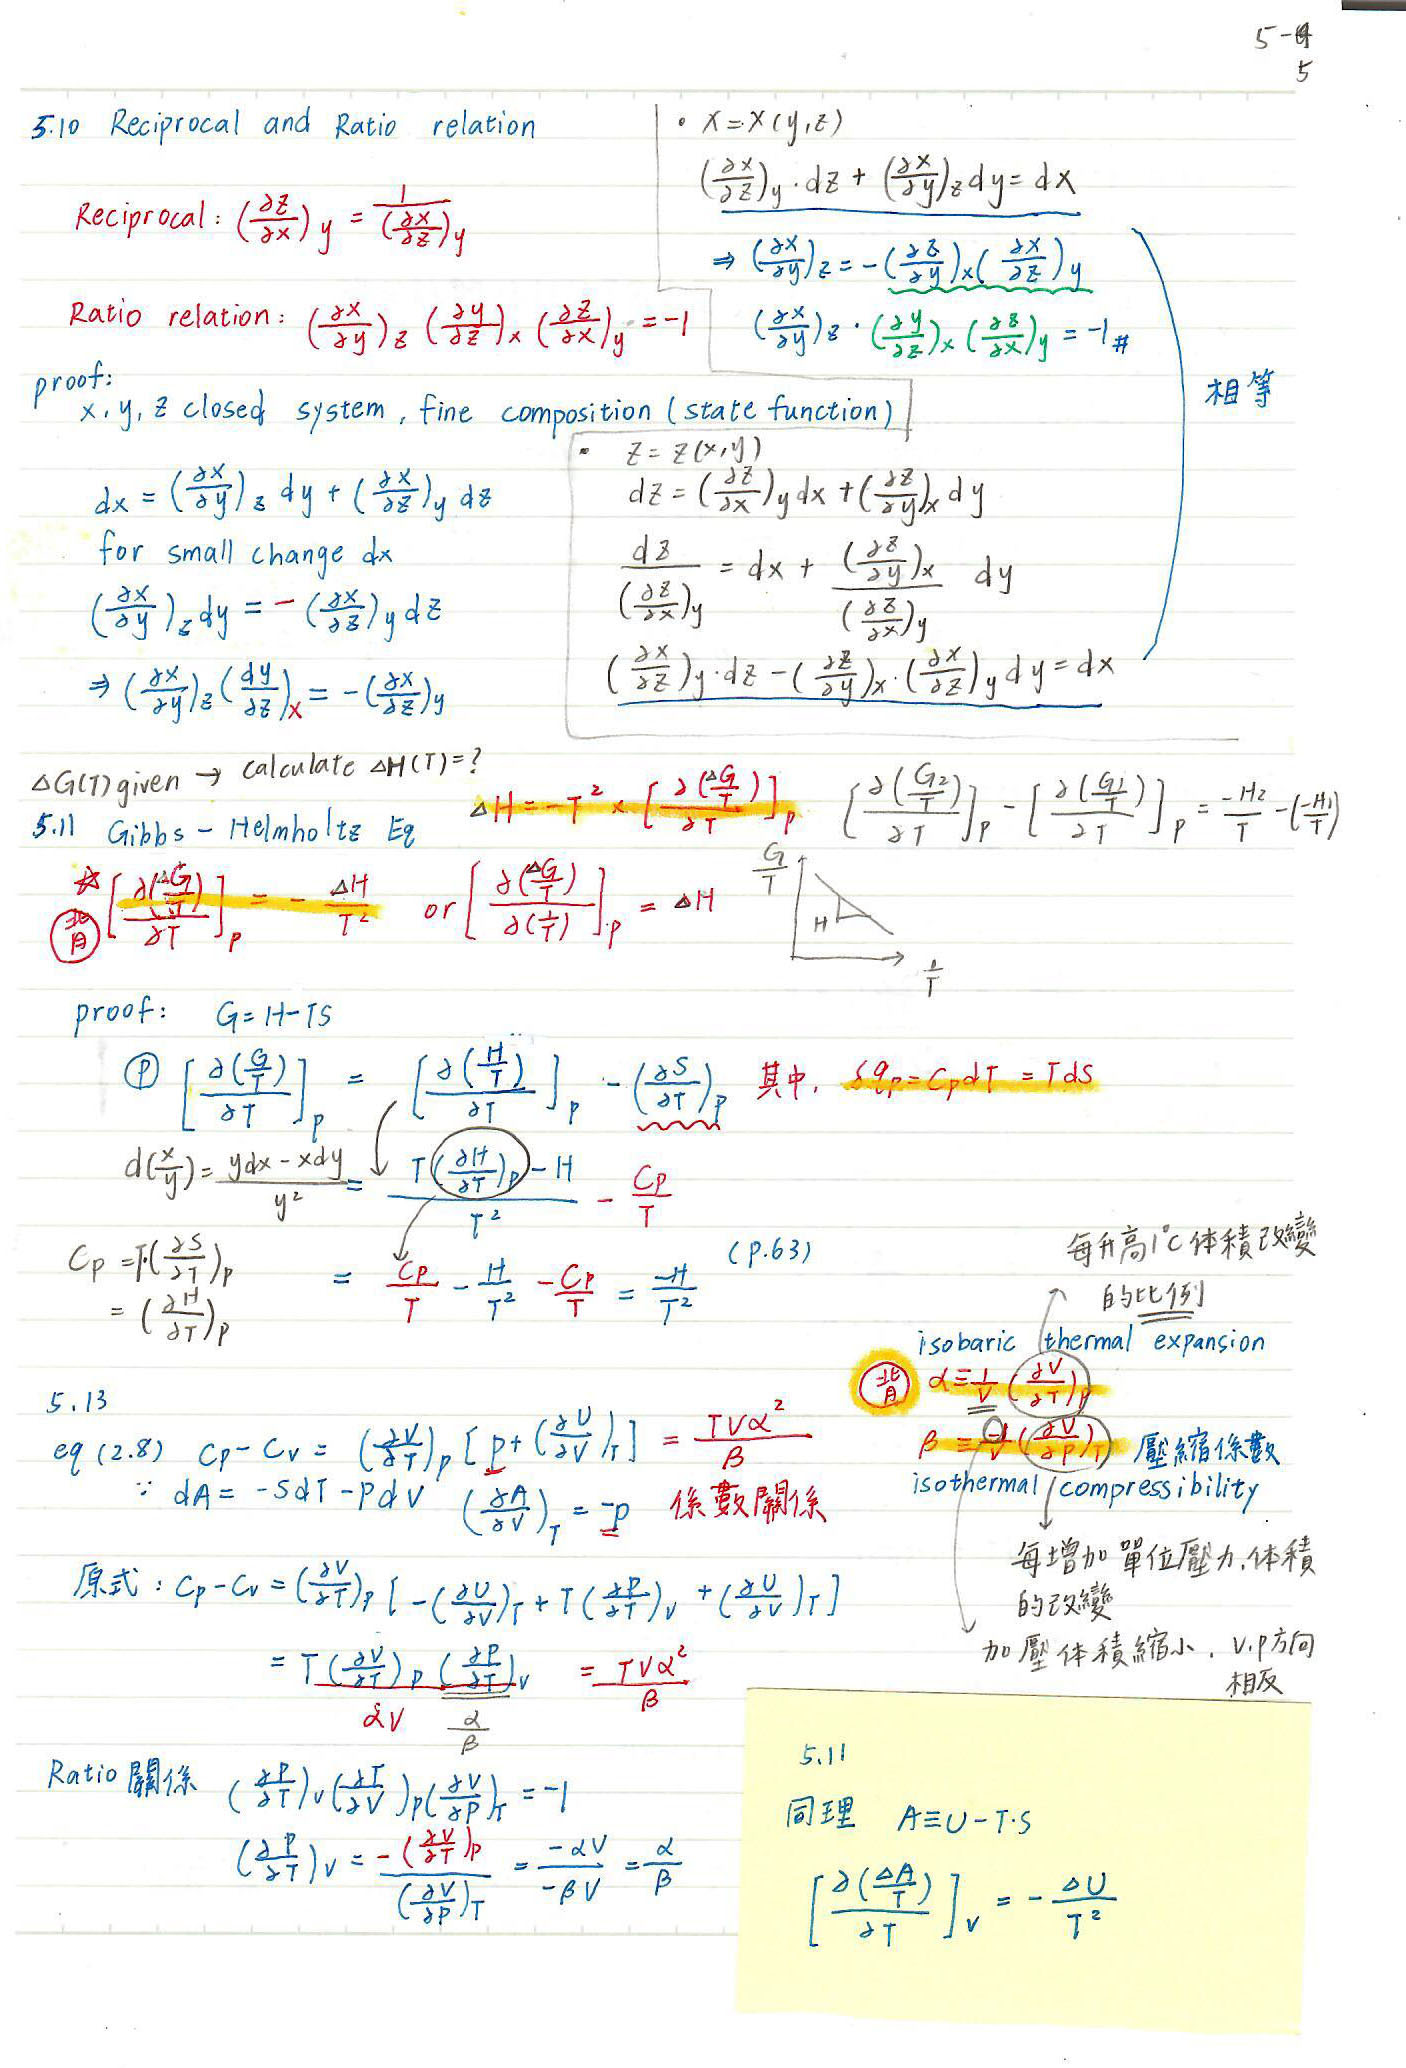 5-4
5
5.10 Reciprocal and Ratio relation
Reciprocal: (∂z/∂x)y = 1/(∂x/∂z)y
Ratio relation: (∂x/∂y)z (∂y/∂z)x (∂z/∂x)y = -1
proof:
x, y, z closed system, fine composition (state function)
dx = (∂x/∂y)z dy + (∂x/∂z)y dz
for small change dx
(∂x/∂y)z dy = -(∂x/∂z)y dz
⇒ (∂x/∂y)z (dy/dz)x = -(∂x/∂z)y
• x = x(y,z)
(∂x/∂z)y · dz + (∂x/∂y)z dy = dx
⇒ (∂x/∂y)z = -(∂z/∂y)x (∂x/∂z)y
(∂x/∂y)z · (∂y/∂z)x (∂z/∂x)y = -1 #
相等
• z = z(x,y)
dz = (∂z/∂x)y dx + (∂z/∂y)x dy
dz/(∂z/∂x)y = dx + (∂z/∂y)x/(∂z/∂x)y dy
(∂x/∂z)y · dz - (∂z/∂y)x · (∂x/∂z)y dy = dx
△G(T) given → calculate △H(T) = ?
5.11 Gibbs - Helmholtz Eq
△H = -T² × [∂(△G/T)/∂T]p
[∂(G2/T)/∂T]p - [∂(G1/T)/∂T]p = -H2/T - (-H1/T)
☆ 背 [∂(△G/T)/∂T]p = - △H/T² or [∂(△G/T)/∂(1/T)]p = △H
G/T
H
1/T
proof: G = H - TS
Ⓟ [∂(G/T)/∂T]p = [∂(H/T)/∂T]p - (∂S/∂T)p 其中, δqp = CpdT = TdS
d(x/y) = (ydx - xdy)/y² = (T(∂H/∂T)p - H)/T² - Cp/T
Cp = T·(∂S/∂T)p
= (∂H/∂T)p
= Cp/T - H/T² - Cp/T = -H/T² (P.63)
每升高1°C体積改變
的比例
isobaric thermal expansion
背 α ≡ 1/V (∂V/∂T)p
β ≡ -1/V (∂V/∂P)T 壓縮係數
isothermal compressibility
每增加單位壓力,体積
的改變
加壓体積縮小, V.P方向
相反
5.13
eq (2.8) Cp - Cv = (∂V/∂T)p [p + (∂U/∂V)T] = TVα²/β
∵ dA = -SdT - PdV (∂A/∂V)T = -p 係數關係
原式: Cp - Cv = (∂V/∂T)p [-(∂U/∂V)T + T(∂P/∂T)v + (∂U/∂V)T]
= T(∂V/∂T)p (∂P/∂T)v = TVα²/β
αV α/β
Ratio 關係 (∂P/∂T)v (∂T/∂V)p (∂V/∂P)T = -1
(∂P/∂T)v = -(∂V/∂T)p/(∂V/∂P)T = -αV/-βV = α/β
5.11
同理 A ≡ U - T·S
[∂(△A/T)/∂T]v = - △U/T²